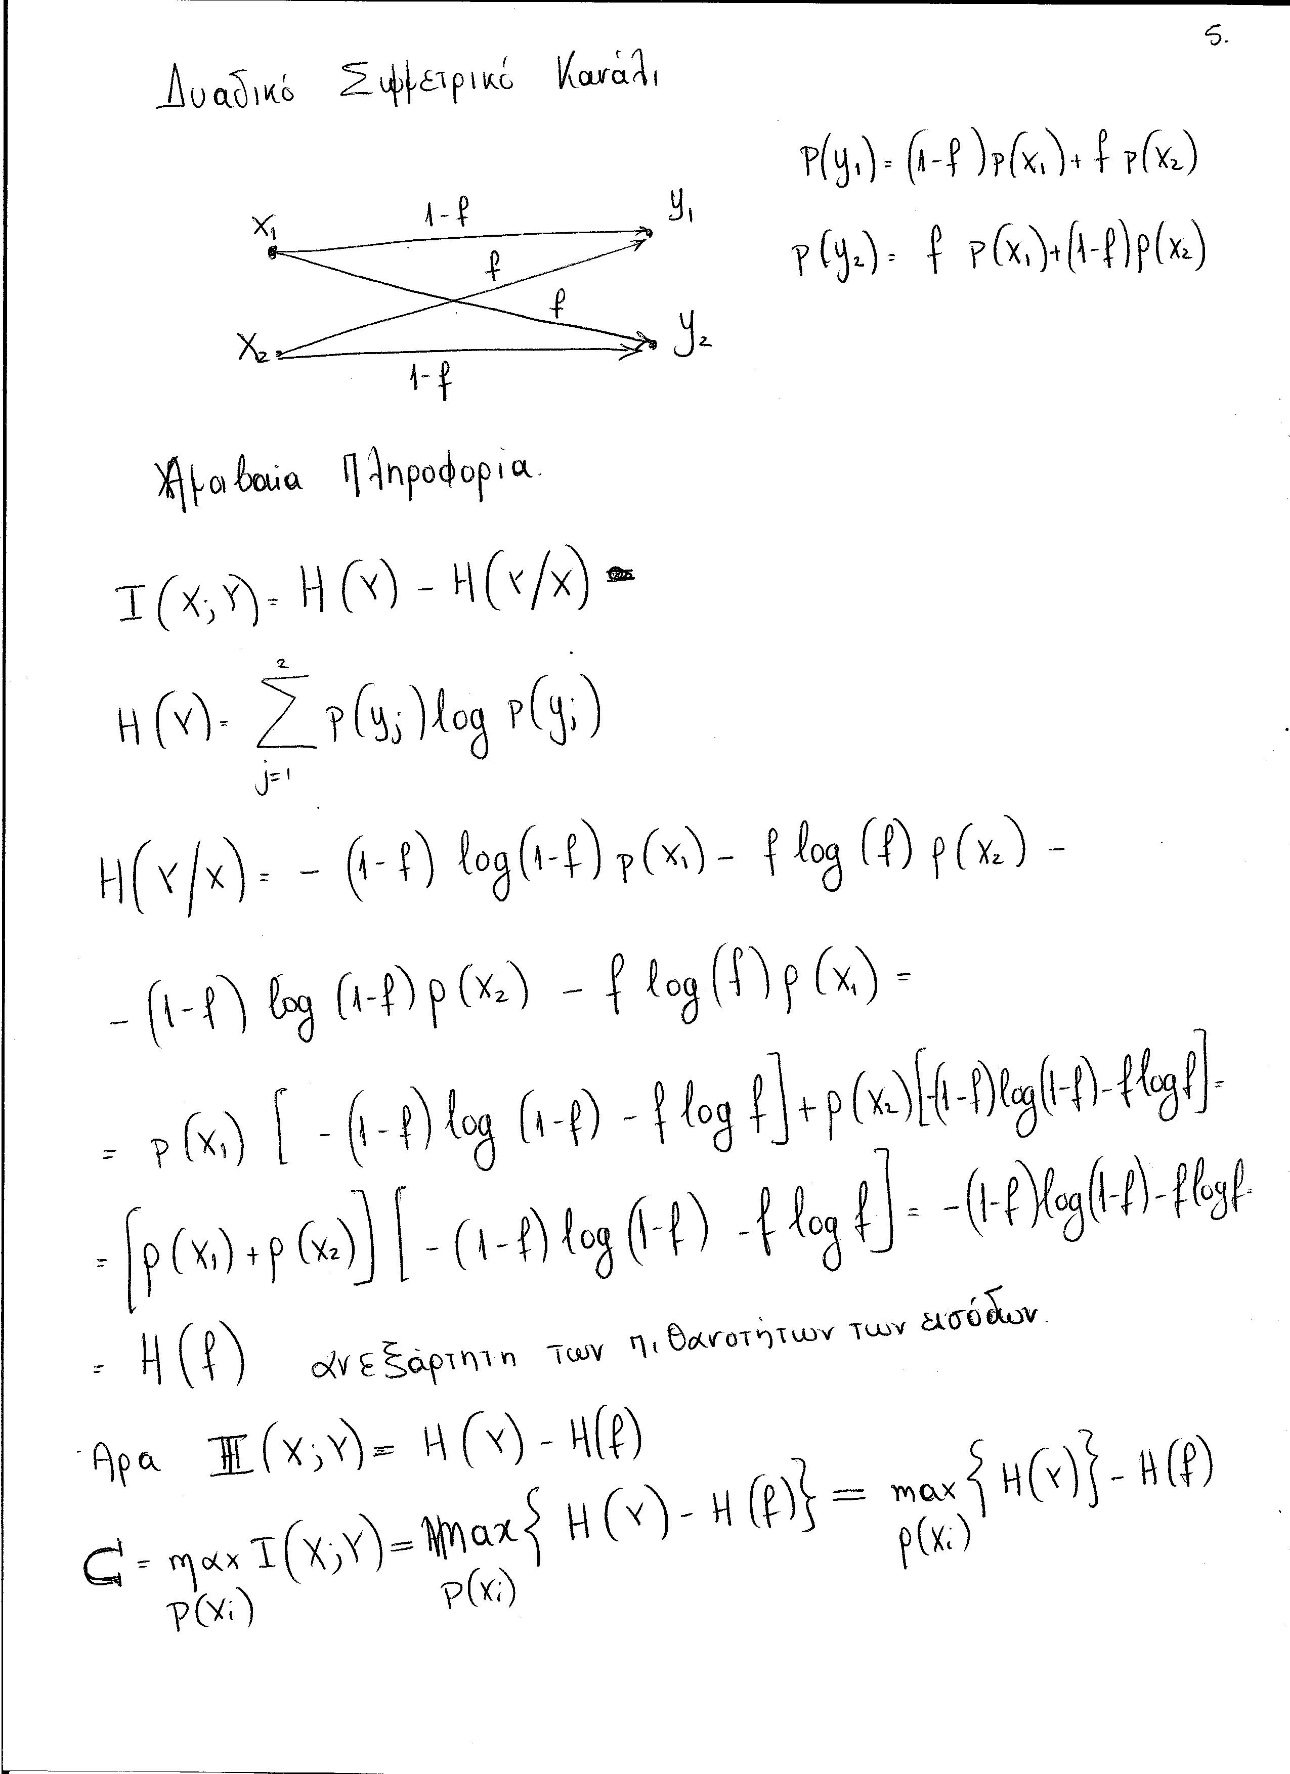 5.
Δυαδικό Συμμετρικό Κανάλι
P(y₁) = (1-f)p(x₁) + f p(x₂)
P(y₂) = f p(x₁) + (1-f)p(x₂)
x₁ 1-f y₁
f
f
x₂ y₂
1-f
Αμοιβαία Πληροφορία.
I(X;Y) = H(Y) - H(Y/X)
H(Y) = ∑ p(yⱼ) log p(yⱼ)
2
j=1
H(Y/X) = - (1-f) log(1-f) p(x₁) - f log(f) p(x₂) -
- (1-f) log(1-f) p(x₂) - f log(f) p(x₁) =
= p(x₁) [ - (1-f) log(1-f) - f log f ] + p(x₂)[-(1-f)log(1-f) - f log f] =
= [p(x₁) + p(x₂)] [ - (1-f) log(1-f) - f log f ] = -(1-f)log(1-f) - f log f =
= H(f) ανεξάρτητη των πιθανοτήτων των εισόδων.
Άρα I(X;Y) = H(Y) - H(f)
C = max I(X;Y) = max{ H(Y) - H(f)} = max{H(Y)} - H(f)
p(xᵢ) p(xᵢ) p(xᵢ)